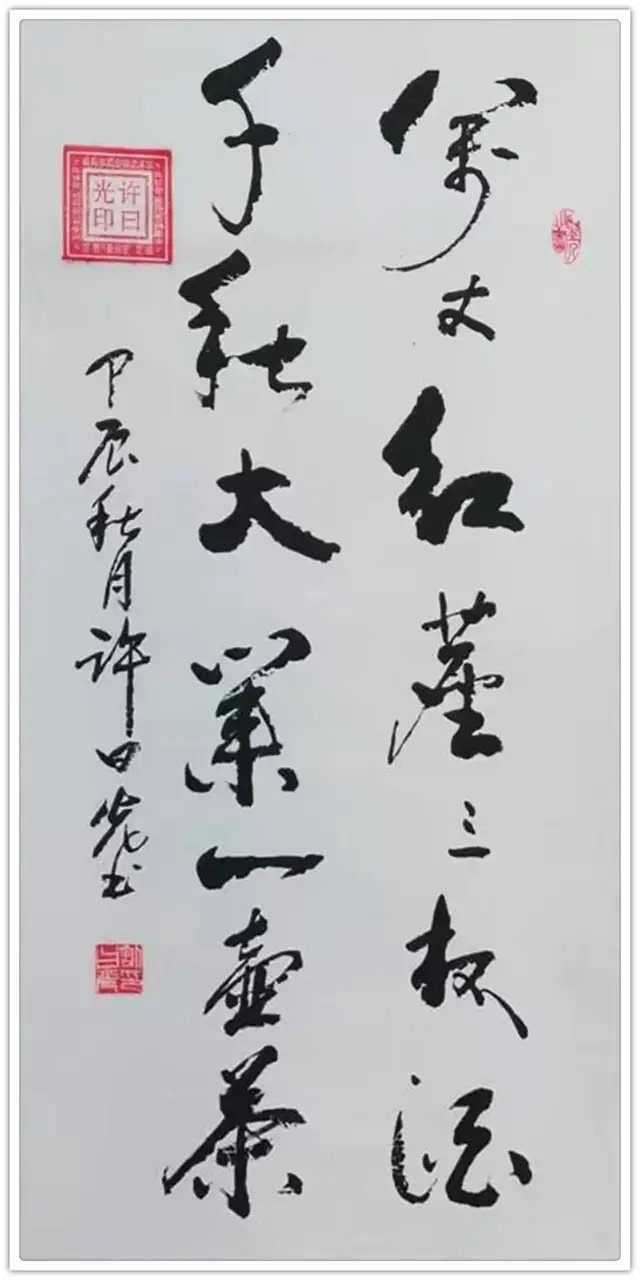 萬丈红塵三杯酒
千秋大業一壷茶
甲辰秋月许日光书
许日光印